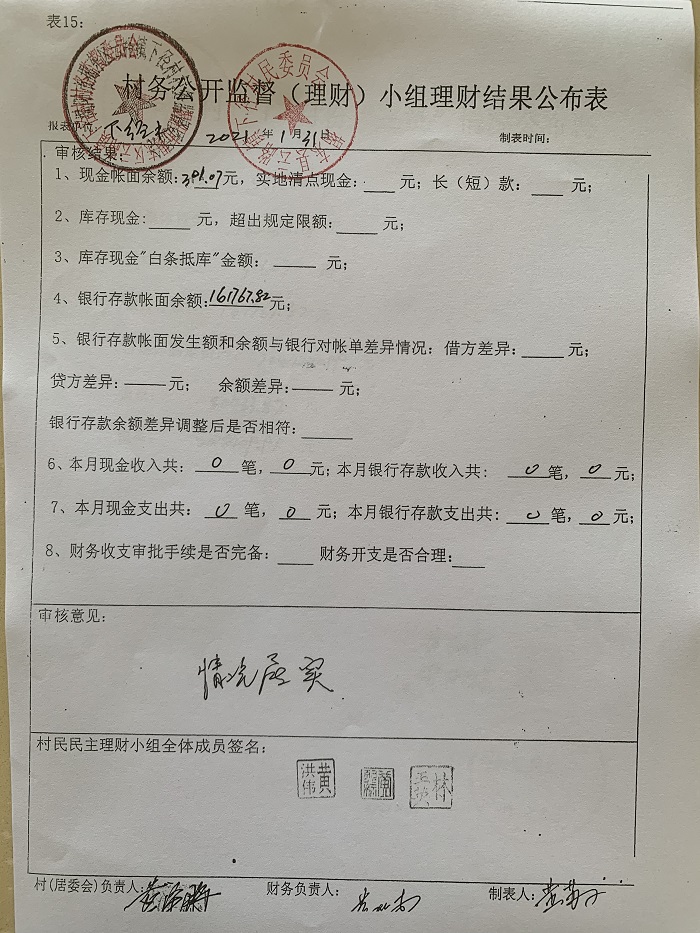 表15：
村务公开监督（理财）小组理财结果公布表
报表单位：下径村 2021年1月31日 制表时间：
审核结果：
1、现金帐面余额：391.07元，实地清点现金：___元；长（短）款：___元；
2、库存现金：___元，超出规定限额：___元；
3、库存现金"白条抵库"金额：___元；
4、银行存款帐面余额：161767.82元；
5、银行存款帐面发生额和余额与银行对帐单差异情况：借方差异：___元；
贷方差异：___元；余额差异：___元；
银行存款余额差异调整后是否相符：___
6、本月现金收入共：0笔，0元；本月银行存款收入共：0笔，0元；
7、本月现金支出共：0笔，0元；本月银行存款支出共：0笔，0元；
8、财务收支审批手续是否完备：___ 财务开支是否合理：___
审核意见：
情况属实
村民民主理财小组全体成员签名：
黄洪伟 林玉英
村(居委会)负责人： 财务负责人： 制表人：